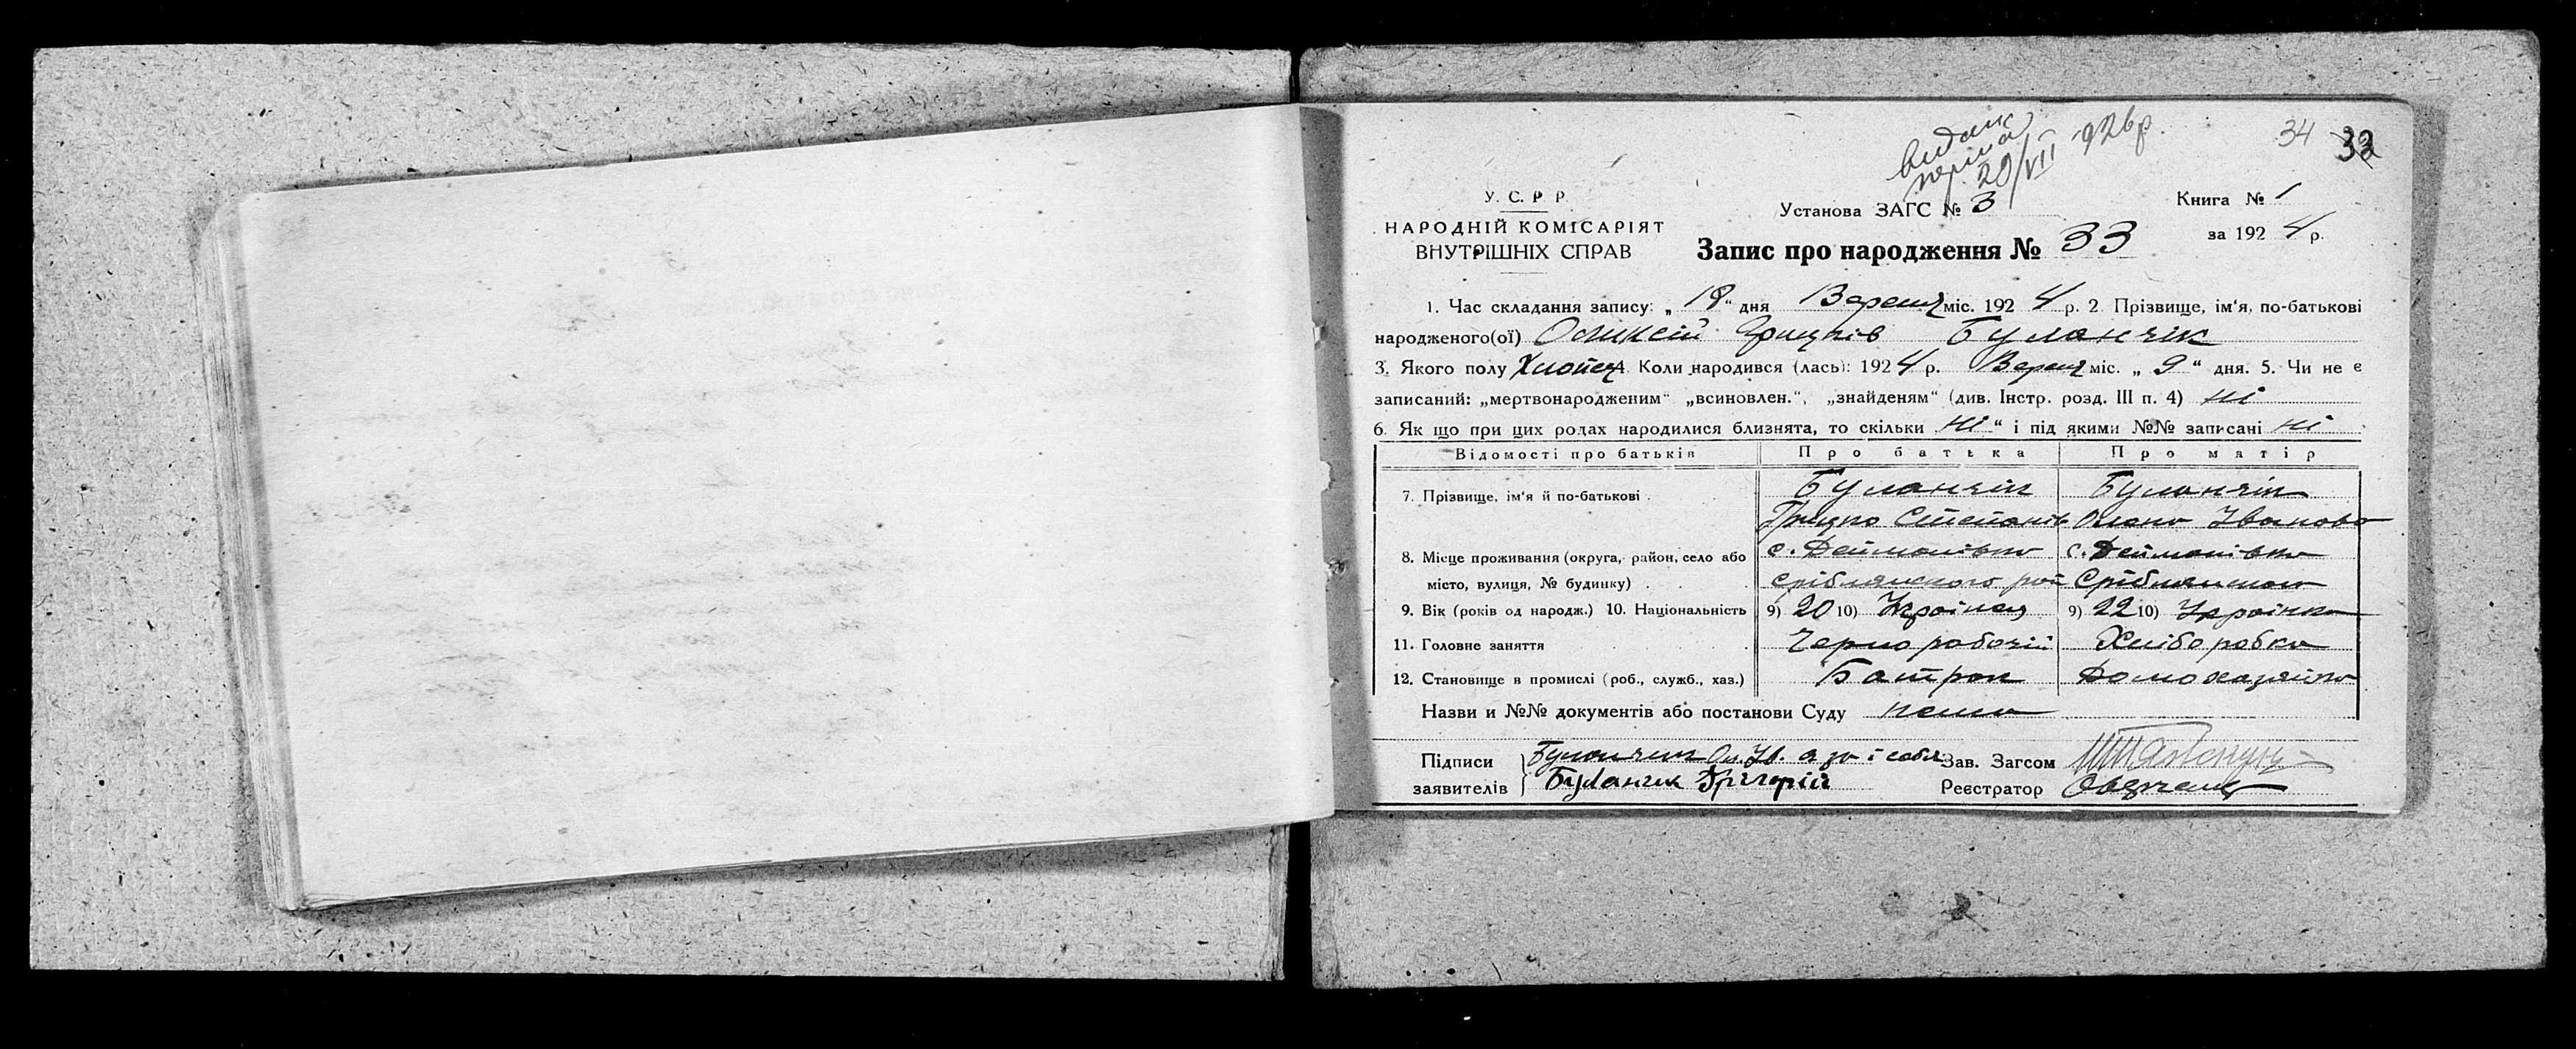 34 33
видана
20/VII 926 р.
У. С. Р Р.
НАРОДНІЙ КОМІСАРІЯТ
ВНУТРІШНІХ СПРАВ
Установа ЗАГС № 3
Запис про народження № 33
Книга № 1
за 1924 р.
1. Час складання запису: „18“ дня Вересня міс. 1924 р. 2. Прізвище, ім‘я, по-батькові
народженого(ої) Олексій Грицків Буланчік
3. Якого полу Хлопец 4. Коли народився (лась): 1924 р. Вересня міс. „9“ дня. 5. Чи не є
записаний: „мертвонародженим“ „всиновлен.“, „знайденям“ (див. Інстр. розд. III п. 4) ні
6. Як що при цих родах народилися близнята, то скільки „ні“ і під якими №№ записані ні
Відомості про батьків Про батька Про матір
7. Прізвище, ім‘я й по-батькові Буланчік Буланчік
Грицко Степанів Олена Іванова
8. Місце проживання (округа, район, село або с. Дейманівка с. Дейманівка
місто, вулиця, № будинку) Сріблянского рай Срібнянского
9. Вік (років од народж.) 10. Національність 9) 20 10) Українец 9) 22 10) Українка
11. Головне заняття Чернорабочій Хліборобка
12. Становище в промислі (роб., служб., хаз.) Батрак Домохазяйка
Назви и №№ документів або постанови Суду нема
Підписи заявителів Буланчик Ол. Ів. а за і себя
Буланчик Григорій
Зав. Загсом
Реєстратор